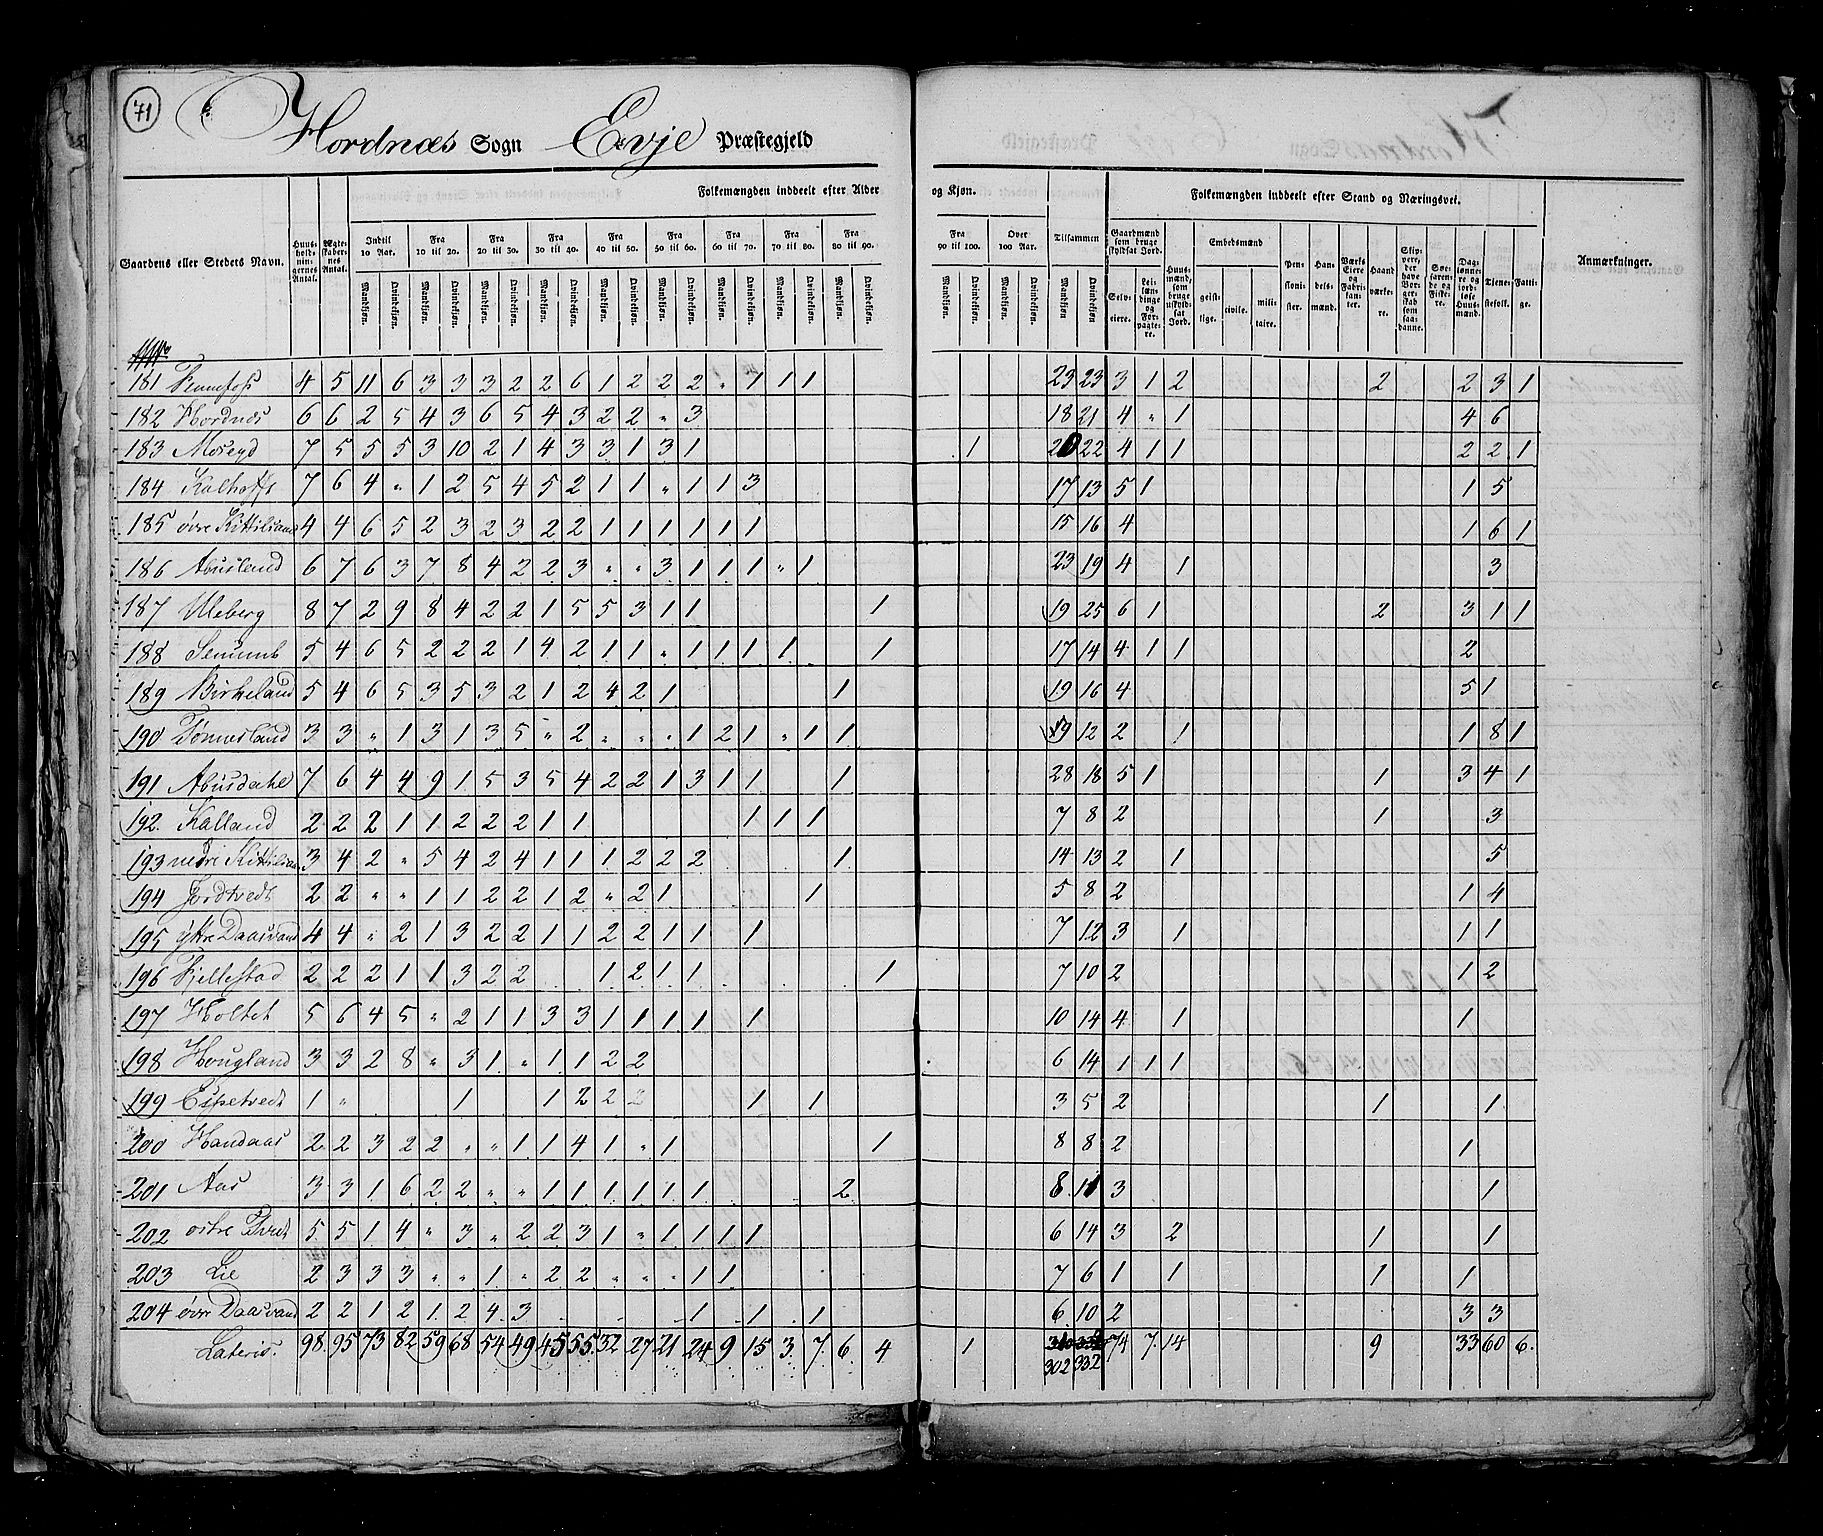 71
Hordnæs Sogn Evje Præstegjeld
Folkemængden inddeelt efter Alder og Kjøn.
Folkemængden inddeelt efter Stand og Næringsvei.
Gaardens eller Stedets Navn. Huusholdningernes Antal. Ægteskabernes Antal. Indtil 10 Aar. Fra 10 til 20. Fra 20 til 30. Fra 30 til 40. Fra 40 til 50. Fra 50 til 60. Fra 60 til 70. Fra 70 til 80. Fra 80 til 90. Fra 90 til 100. Over 100 Aar. Tilsammen Gaardmænd som bruge skyldsat Jord. Huusmænd, som bruge uskyldsat Jord. Embedsmænd Pensionister. Handelsmænd. Værks Eiere og Fabrikanter. Haandværkere. Skippere, der have Borgerskab som saadanne. Søefarende og Fiskere. Daglønnere og jordløse Huusmænd. Tjenestefolk. Fattige. Anmærkninger.
Mandkjøn. Qvindekjøn. Mandkjøn. Qvindekjøn. Mandkjøn. Qvindekjøn. Mandkjøn. Qvindekjøn. Mandkjøn. Qvindekjøn. Mandkjøn. Qvindekjøn. Mandkjøn. Qvindekjøn. Mandkjøn. Qvindekjøn. Mandkjøn. Qvindekjøn. Mandkjøn. Qvindekjøn. Mandkjøn. Qvindekjøn. Mandkjøn Qvindekjøn Selveiere. Leilændinge og Forpagtere. geistlige. civile. militaire.
181 4 5 11 6 3 3 3 2 2 6 1 2 2 2 „ 1 1 1 23 23 3 1 2 2 2 3 1
182 Hordnæs 6 6 2 5 4 3 6 5 4 3 2 2 „ 3 18 21 4 „ 1 4 6
183 Moseyd 7 5 5 5 3 10 2 1 4 3 3 1 3 1 1 20 22 4 1 1 2 2 1
184 Kalhofft 7 6 4 „ 1 2 5 4 5 2 1 1 „ 1 1 3 17 13 5 1 1 5
185 øvre Kittilsland 4 4 6 5 2 3 2 3 2 2 1 1 1 1 1 1 15 16 4 1 6 1
186 Abusland 6 7 6 3 7 8 4 2 2 3 „ „ 3 1 1 1 „ 1 23 19 4 1 3
187 Uleberg 8 7 2 9 8 4 2 2 1 5 5 3 1 1 1 19 25 6 1 2 3 1 1
188 Senumb 5 4 6 5 2 2 2 1 4 2 1 1 „ 1 1 1 1 1 17 14 4 1 1 2
189 Birkeland 5 4 6 5 3 5 3 2 1 2 4 2 1 1 19 16 4 5 1
190 Tønnesland 3 3 „ 1 3 1 3 5 „ 2 „ „ „ 1 2 1 „ 1 1 9 12 2 1 1 8 1
191 Abusdahl 7 6 4 4 9 1 5 3 5 4 2 2 1 3 1 1 1 28 18 5 1 1 3 4 1
192 Kalland 2 2 2 1 1 2 2 2 1 1 1 1 1 7 8 2 1 3
193 nedre 3 4 2 „ 5 4 2 4 1 1 1 2 2 2 1 14 13 2 1 5
194 Jordtvedt 2 2 „ „ 1 1 2 2 1 2 „ 2 1 1 5 8 2 1 4
195 yttre Daasvand 4 4 „ 2 1 3 2 2 1 1 2 2 1 1 1 7 12 3 1 1 1
196 Fjellestad 2 2 2 1 1 3 2 2 1 2 1 1 1 7 10 2 1 2
197 Holtet 5 6 4 5 „ 2 1 1 3 3 1 1 1 1 1 10 14 4 1 1
198 Hougland 3 3 2 8 „ 3 1 „ 1 1 2 2 6 14 1 1 1
199 Espetvedt 1 „ 1 1 2 2 2 1 1 3 5 2 1 1
200 Handaas 2 2 3 2 2 „ „ 1 1 4 1 „ 1 1 8 8 2 1
201 Aas 3 3 1 6 2 2 „ „ 1 1 1 1 1 1 2 8 11 3 1
202 østre Tvedt 5 5 1 4 „ 3 „ 2 2 3 1 „ 1 1 1 1 6 14 3 2 1 1
203 Lie 2 3 3 3 „ „ 1 „ 2 2 „ „ „ 1 1 7 6 1 1 1 1
204 øvre Daasvand 2 2 1 2 1 2 4 3 1 1 1 6 10 2 3 3
Lateris. 98. 95 73 82 59 68 54 49 45 55 32 27 21 24 9 15 3 7 6 4 1 74 7. 14 9 33 60 6.
302 332